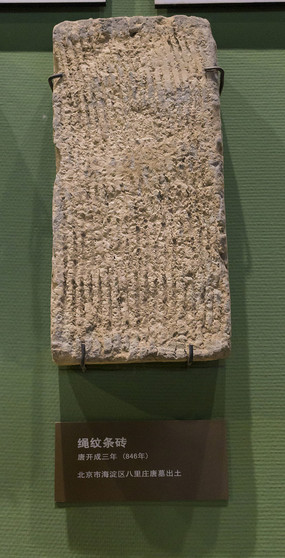 绳纹条砖
唐开成三年（846年）
北京市海淀区八里庄唐墓出土